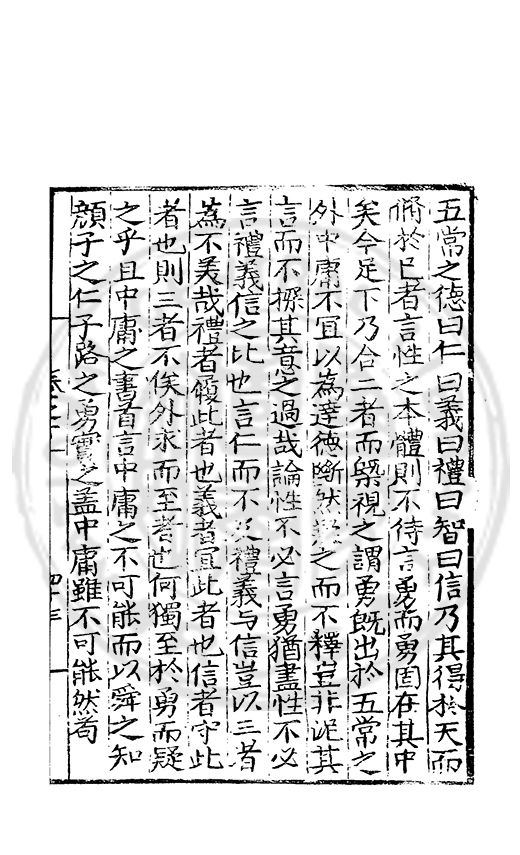 五常之德曰仁曰義曰禮曰智曰信乃其得於天而
備於已者言性之本體則不待言勇而勇固在其中
矣今足下乃合二者而槩視之謂勇既出於五常之
外中庸不宜以為達德斷然疑之而不釋豈非泥其
言而不探其意之過哉論性不必言勇猶盡性不必
言禮義信之比也言仁而不及禮義与信豈以三者
為不美哉禮者履此者也義者宜此者也信者守此
者也則三者不俟外求而至者也何獨至於勇而疑
之乎且中庸之書首言中庸之不可能而以舜之知
顏子之仁子路之勇實之盖中庸雖不可能然苟
卷之二
四十三